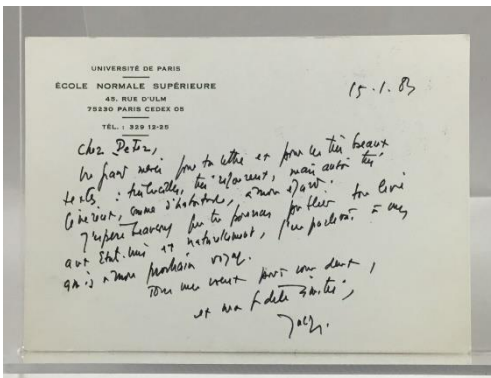 UNIVERSITÉ DE PARIS
ÉCOLE NORMALE SUPÉRIEURE
45, RUE D'ULM
75230 PARIS CEDEX 05
TÉL. : 329 12-25
15.1.83
Cher Peter,
Un grand merci pour ta lettre et pour ces très beaux
textes : très lucides, très rigoureux, mais aussi très
généreux, comme d'habitude, à mon égard.
J'espère beaucoup que tu pourras publier ton livre
aux Etats-Unis et naturellement, j'en parlerai à mes
amis à mon prochain voyage.
Tous mes voeux pour vous deux,
et ma fidèle amitié,